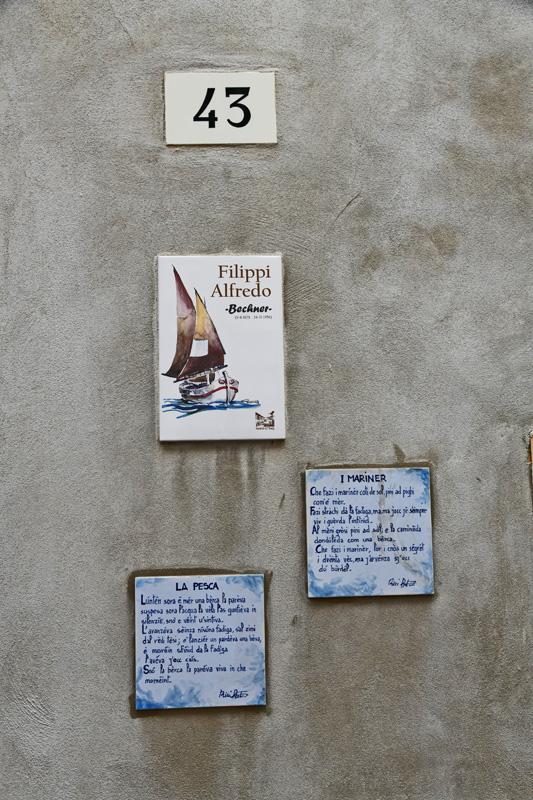 43
Filippi
Alfredo
-Bechner-
I MARINER
Che fazi i mariner coti de sol, pin ad pighi
com'e mèr.
Fazi strachi dà la fadiga, ma, ma jocc jè sèmper
viv i guèrda l'infinid.
Al mèni grosi pini ad and la caminàda
dondolèda com una bèrca.
Che fazi i mariner, lor i cnòs un sègrét
i dventa vèc, ma j'arvènza sj'occ
du burdel.
LA PESCA
Luntèn sora e mér una bèrca la paréva
suspesa sora l'acqua, la vela l'as gunfiéva in
silenzie, snò e vént u's'intiva.
L'avanzéva sénza nisuna fadiga, sal zimi
dal rèdi
e' lanziér un paréva una bèva,
e mariném sfinid da la fadiga
l'avéva jocc cius.
Snò la bèrca la paréva viva in che
momént.